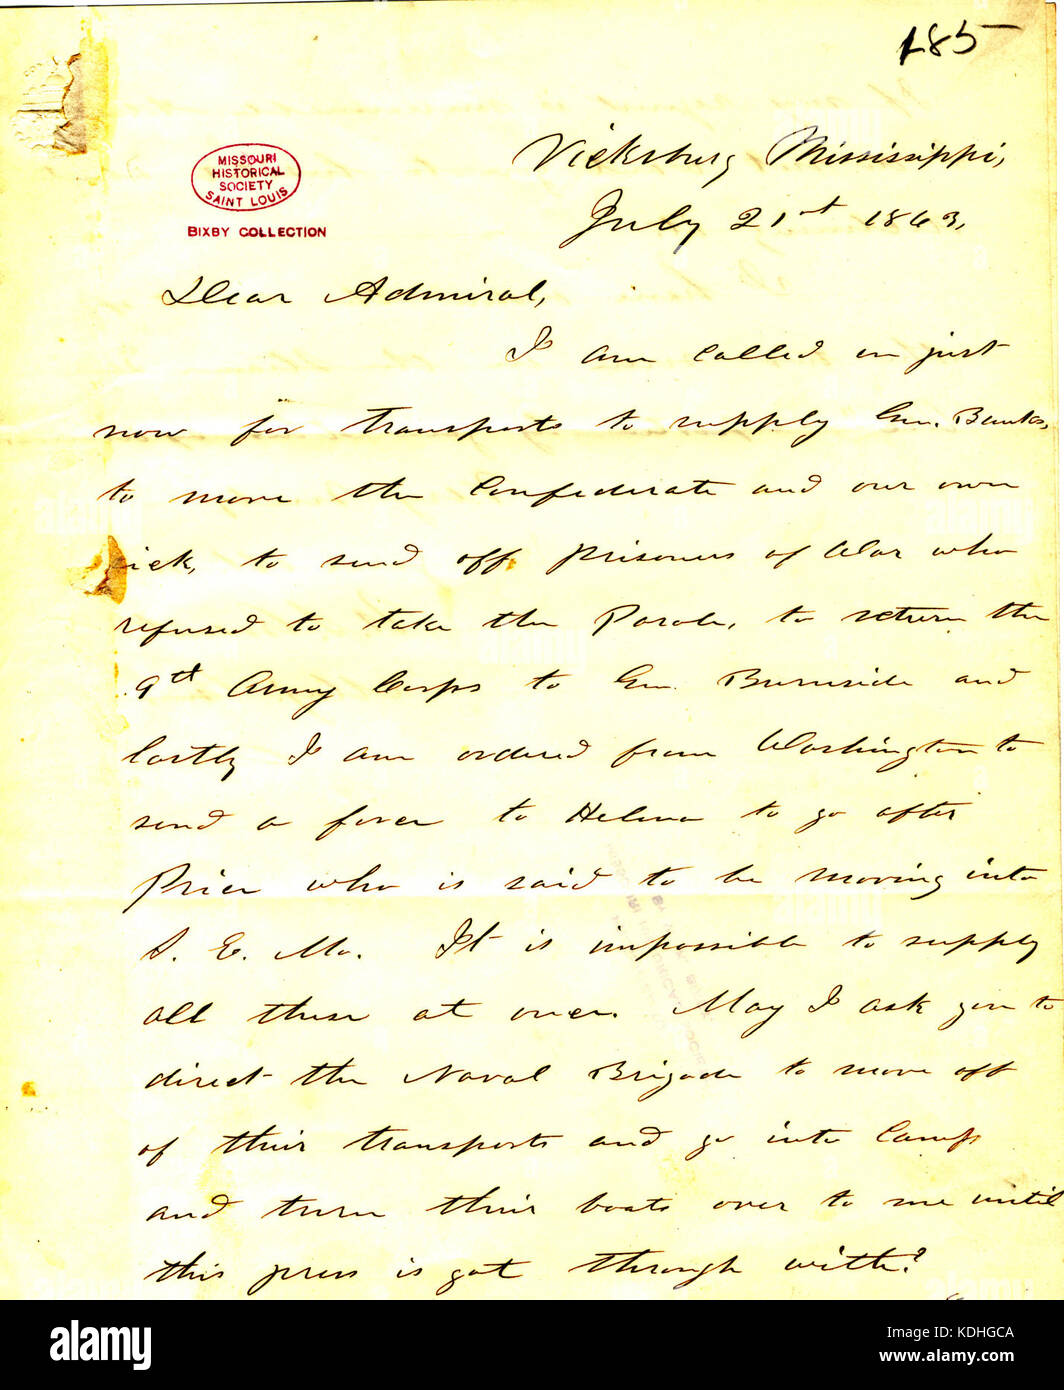 185
MISSOURI
HISTORICAL
SOCIETY
SAINT LOUIS
BIXBY COLLECTION
Vicksburg Mississippi,
July 21st 1863,
Dear Admiral,
I am called on just
now for transports to supply Gen. Banks,
to move the Confederate and our own
sick, to send off prisoners of War who
refused to take the Parole, to return the
9th Army Corps to Gen. Burnside and
lastly I am ordered from Washington to
send a force to Helena to go after
Price who is said to be moving into
S. E. Mo. It is impossible to supply
all these at once. May I ask you to
direct the Naval Brigade to move off
of their transports and go into Camp
and turn their boats over to me until
this press is got through with?
alamy
Image ID: KDHGCA
www.alamy.com